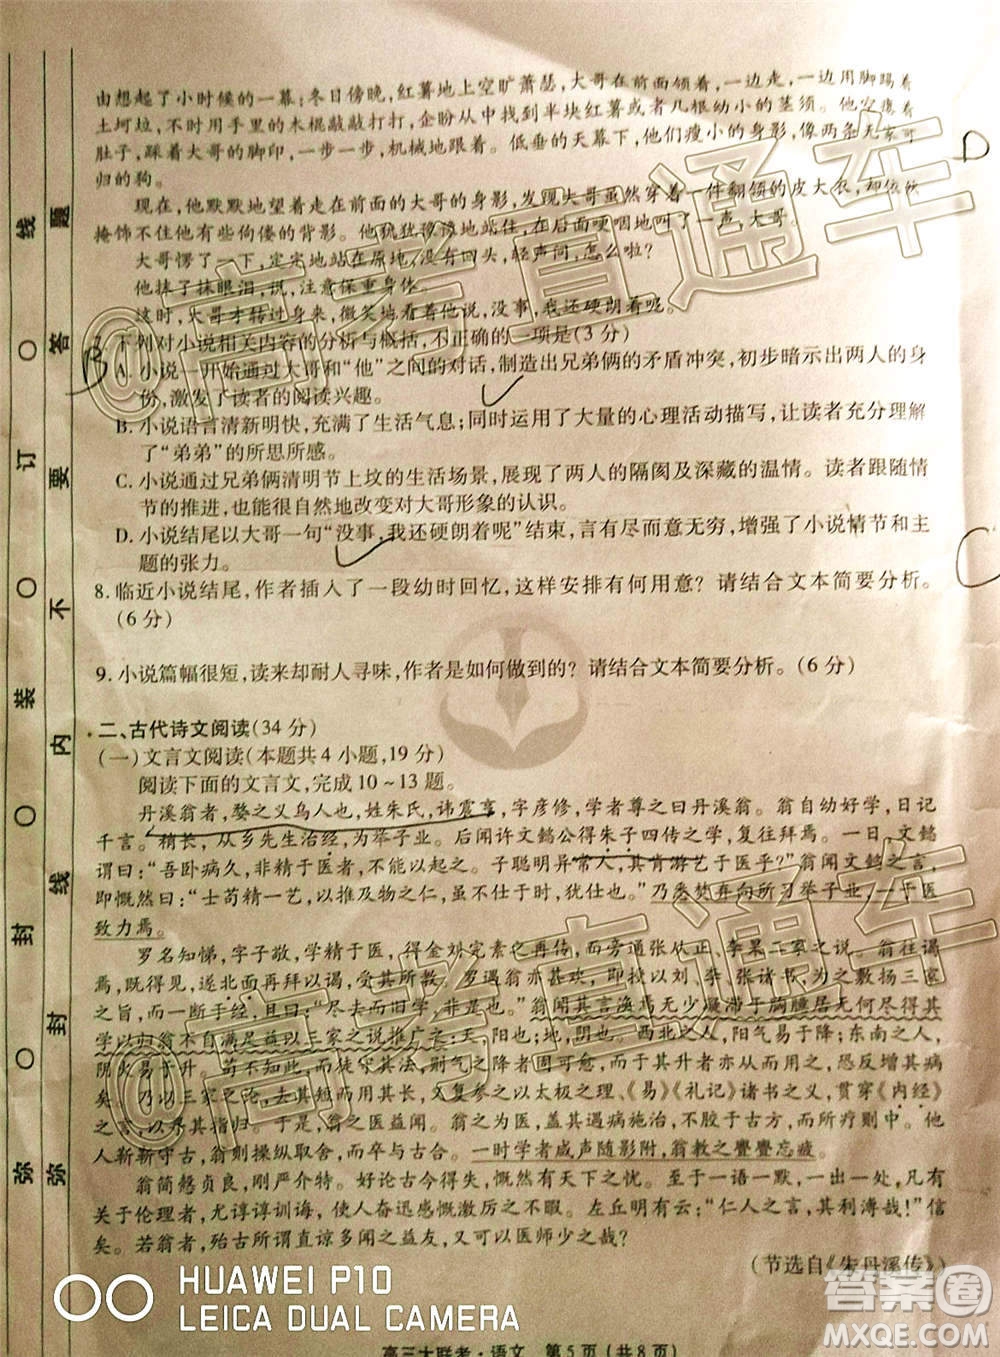 由想起了小时候的一幕:冬日傍晚,红薯地上空旷萧瑟,大哥在前面领着,一边走,一边用脚踢着
土坷垃,不时用手里的木棍敲敲打打,企盼分到半块红薯或者几根幼小的茎须。他缩着脖子,空着
肚子,踩着大哥的脚印,一步一步,机械地跟着。苍茫的天幕下,他们瘦小的身影,像两条无家可
归的狗。
现在,他默默地望着走在前面的大哥的身影,发现大哥虽然穿着一件翻领的皮大衣,却依然
掩饰不住他有些佝偻的背影。他犹犹豫豫地站住,在后面哽咽地叫了一声,大哥。
大哥愣了一下,定定地站在原地,没有回头,轻声问,怎么啦?
他抹了抹眼泪,说,注意保重身体。
这时,大哥才转过身来,微笑地看着他说,没事,我还硬朗着呢。
7.下列对小说相关内容的分析与概括,不正确的一项是(3分)
A.小说一开始通过大哥和“他”之间的对话,制造出兄弟俩的矛盾冲突,初步暗示出两人的身
份,激发了读者的阅读兴趣。
B.小说语言清新明快,充满了生活气息;同时运用了大量的心理活动描写,让读者充分理解
了“弟弟”的所思所感。
C.小说通过兄弟俩清明节上坟的生活场景,展现了两人的隔阂及深藏的温情。读者跟随情
节的推进,也很自然地改变对大哥形象的认识。
D.小说结尾以大哥一句“没事,我还硬朗着呢”结束,言有尽而意无穷,增强了小说情节和主
题的张力。
8.临近小说结尾,作者插入了一段幼时回忆,这样安排有何用意?请结合文本简要分析。
(6分)
9.小说篇幅很短,读来却耐人寻味,作者是如何做到的?请结合文本简要分析。(6分)
二、古代诗文阅读(34分)
(一)文言文阅读(本题共4小题,19分)
阅读下面的文言文,完成10~13题。
丹溪翁者,婺之义乌人也,姓朱氏,讳震亨,字彦修,学者尊之曰丹溪翁。翁自幼好学,日记
千言。稍长,从乡先生治经,为举子业。后闻许文懿公得朱子四传之学,复往拜焉。一日,文懿
谓曰:“吾卧病久,非精于医者不能以起之。子聪明异常人,其肯游艺于医乎?”翁闻文懿之言,
即慨然曰:“士苟精一艺,以推及物之仁,虽不仕于时,犹仕也。”乃悉焚弃向所习举子业,一于医
致力焉。
罗名知悌,字子敬,学精于医,得金刘完素之再传,而旁通张从正、李杲二家之说。翁往谒
焉,遂北面再拜以谒,受其所教。罗遇翁亦甚欢,即授以刘、李、张诸书,为之敷扬三家
之旨,而谓曰:“尽去而旧学,非是也。”翁闻其言涣焉无少凝滞于胸臆居无何尽得其
学以归翁自不满足益以三家之说推广之天,阳也;地,阴也。西北之人,阳气易于降;东南之人,
阴火易于升。苟不知此,而徒守其法,则气之降者固可愈,而于其升者亦从而用之,吾恐反增其病
矣。乃以三家之论,去其短而用其长,又复参之以太极之理、《易》《礼记》诸书之义,贯穿《内经》
之言,以寻其指归。于是,翁之医益闻。翁之为医,盖其遇病施治,不胶于古方,而所疗则中。他
人靳靳守古,翁则操纵取舍,而卒与古合。一时学者咸声随影附,翁教之亹亹忘疲。
翁简悫贞良,刚严介特。好论古今得失,慨然有天下之忧。至于一语一默,一出一处,凡有关
于伦理者,尤谆谆训诲,使人奋迅感慨激厉之不暇。左丘明有云:“仁人之言,其利溥哉!”
信矣。若翁者,殆古所谓直谅多闻之益友,又可以医师少之哉!
(节选自《朱丹溪传》)
高三大联考·语文 第5页(共8页)
弥 封 装 订 线
弥 封 线 内 不 要 答 题
@高考直通车
@高考直通车
HUAWEI P10
LEICA DUAL CAMERA
答案圈
MXQE.COM